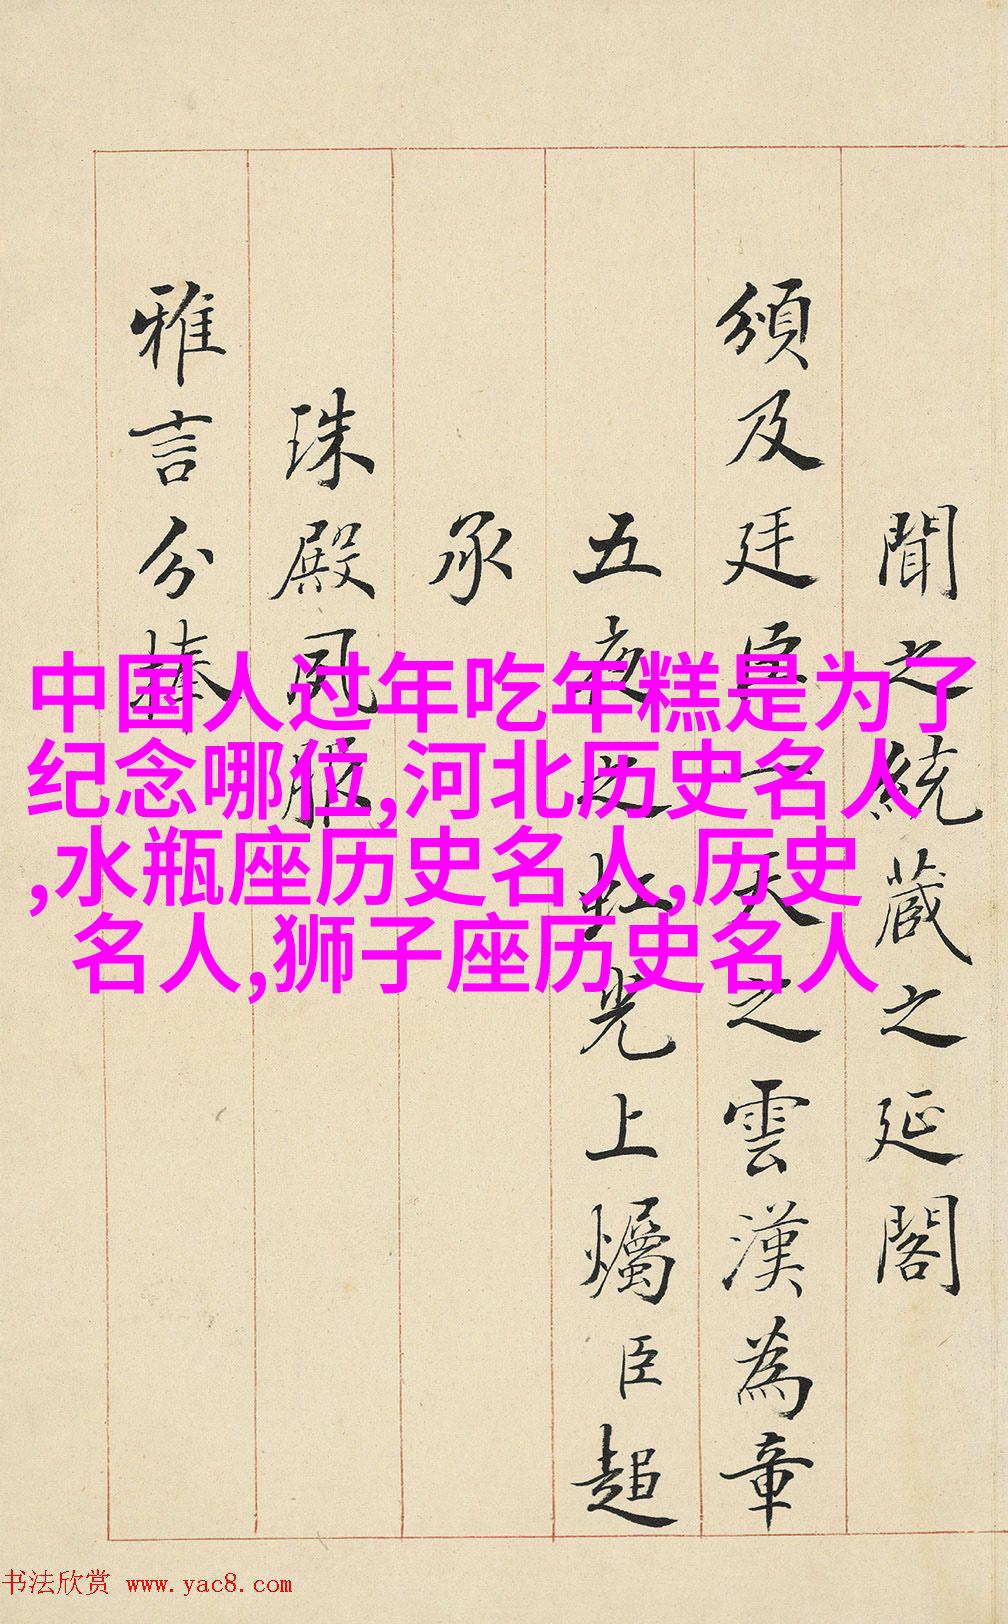 聞之統蔵之延閣
頒及廷臣一天之雲漢為章
五夜之虹光上燭臣超
承
珠殿夙服
雅言分捧
中国人过年吃年糕是为了
纪念哪位,河北历史名人
,水瓶座历史名人,历史
名人,狮子座历史名人
书法欣赏 www.yac8.com